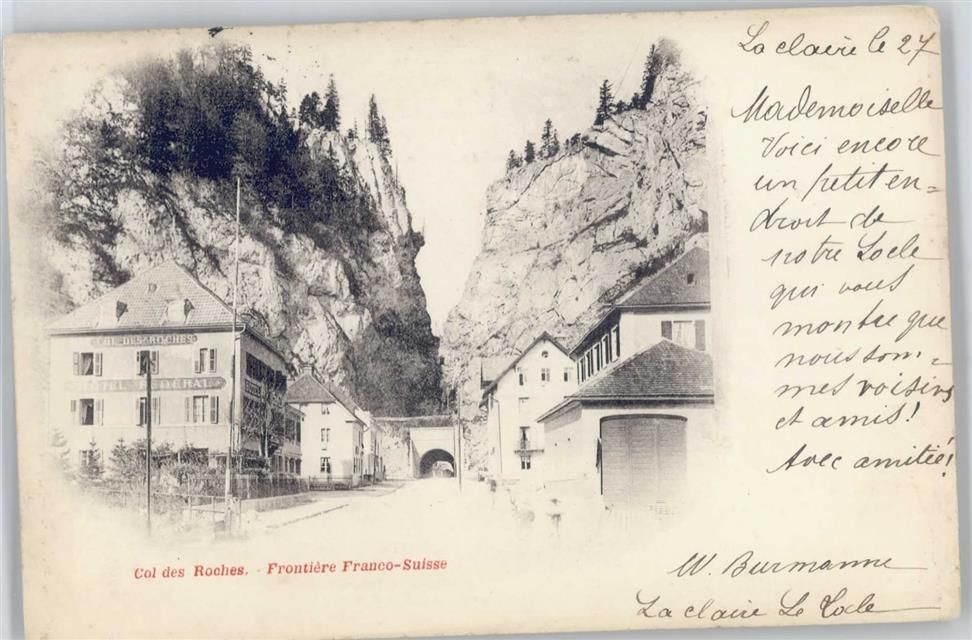 La claire le 27
Mademoiselle
Voici encore
un petit en=
droit de
notre Locle
qui vous
montre que
nous som=
mes voisins
et amis!
Avec amitié!
W. Burmanne
La claire Le Locle
COL-DES-ROCHES
HOTEL FÉDÉRAL
Col des Roches. - Frontière Franco-Suisse